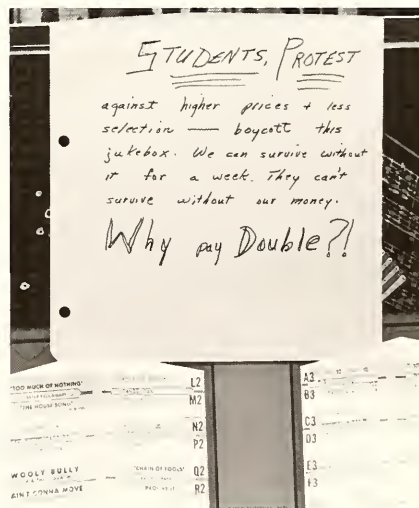 STUDENTS, PROTEST
against higher prices + less
selection — boycott this
jukebox. We can survive without
it for a week. They can't
survive without our money.
Why pay Double?!
"TOO MUCH OF NOTHING"
"THE HOUSE SONG"
L2
M2
N2
P2
WOOLY BULLY
AIN'T GONNA MOVE
"CHAIN OF FOOLS"
Q2
R2
A3
B3
C3
D3
E3
F3